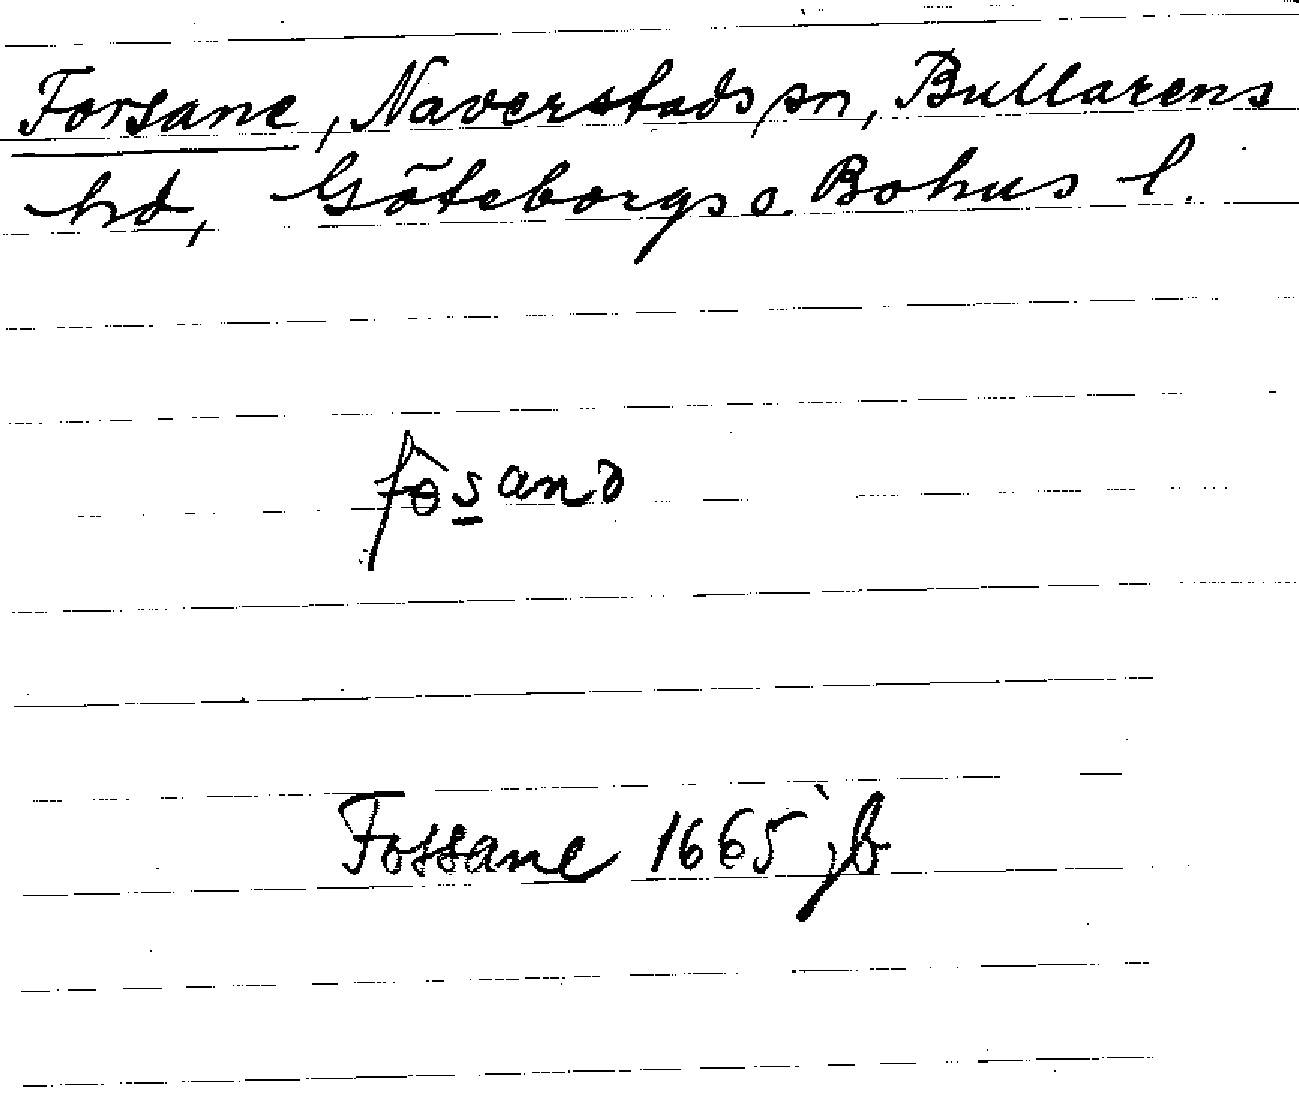 Forsane, Naverstads sn, Bullarens
hd, Göteborgs o. Bohus l.
Fossane 1665 jb